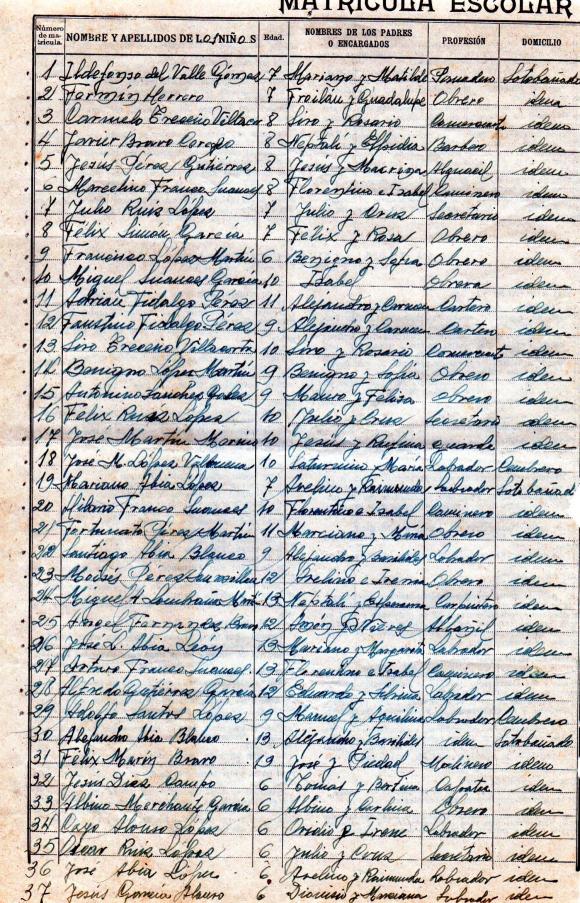 MATRÍCULA ESCOLAR
Número de matrícula. NOMBRE Y APELLIDOS DE LOS NIÑOS Edad. NOMBRES DE LOS PADRES O ENCARGADOS PROFESIÓN DOMICILIO
1 Ildefonso del Valle Gómez 7 Mariano y Matilde Panadero Sotobañado
2 Fermín Herrero 7 Froilán y Guadalupe Obrero idem
3 Carmelo Ereseño Villacor 8 Siro y Rosario Comerciante idem
4 Javier Bravo Cerezo 8 Neptalí y Elpidia Barbero idem
5 Jesús Pérez Gutiérrez 8 Jesús y Macrina Alguacil idem
6 Marcelino Franco Suances 8 Florentino e Isabel Caminero idem
7 Julio Ruiz López 7 Julio y Cruz Secretario idem
8 Félix Simon García 7 Félix y Rosa Obrero idem
9 Francisco López Martín 6 Benigno y Sofía Obrero idem
10 Miguel Suances García 10 Isabel Obrera idem
11 Adrián Fidalgo Pérez 11 Alejandro y Carmen Cartero idem
12 Faustino Fidalgo Pérez 9 Alejandro y Carmen Cartero idem
13 Siro Ereseño Villacorta 10 Siro y Rosario Comerciante idem
14 Benigno López Martín 9 Benigno y Sofía Obrero idem
15 Antonino Sanchez 9 Mauro y Felisa Obrero idem
16 Félix Ruiz López 10 Julio y Cruz Secretario idem
17 José Martín Merino 10 Jesús y guarda idem
18 José M. López Valbuena 10 Saturnino y María Labrador
19 Mariano Abia López 7 Avelino y Raimunda Labrador Sotobañado
20 Hilario Franco Suances 10 Florentino e Isabel Caminero idem
21 Fortunato Pérez Martín 11 Marciano y Obrero idem
22 Santiago Abia Blanco 9 Alejandro y Labrador idem
23 Moisés Pérez 12 Obrero idem
24 Miguel A 13 Neptalí y Esperanza Carpintero idem
25 Angel Fernandez Bravo 12 Simón y Nieves Albañil idem
26 José L. Abia León 13 Mariano y Margarita Labrador idem
27 Arturo Franco Suances 13 Florentino e Isabel Caminero idem
28 Alfredo Gutiérrez García 12 Eduardo y Labrador idem
29 Adolfo Santos López 9 Manuel y Aquilina Labrador
30 Alejandro Abia Blanco 13 Alejandro y idem Sotobañado
31 Félix Marín Bravo 13 José y Piedad Molinero idem
32 Jesús Diez Campo 6 Tomás y idem
33 Albino Merchante García 6 Albino y Obrero idem
34 Cayo Alonso López 6 Ovidio e Irene Labrador idem
35 Oscar Ruiz López 6 Julio y Cruz Secretario idem
36 José Abia López 6 Avelino y Raimunda Labrador idem
37 Jesús García 6 Dionisio y Marciana Labrador idem